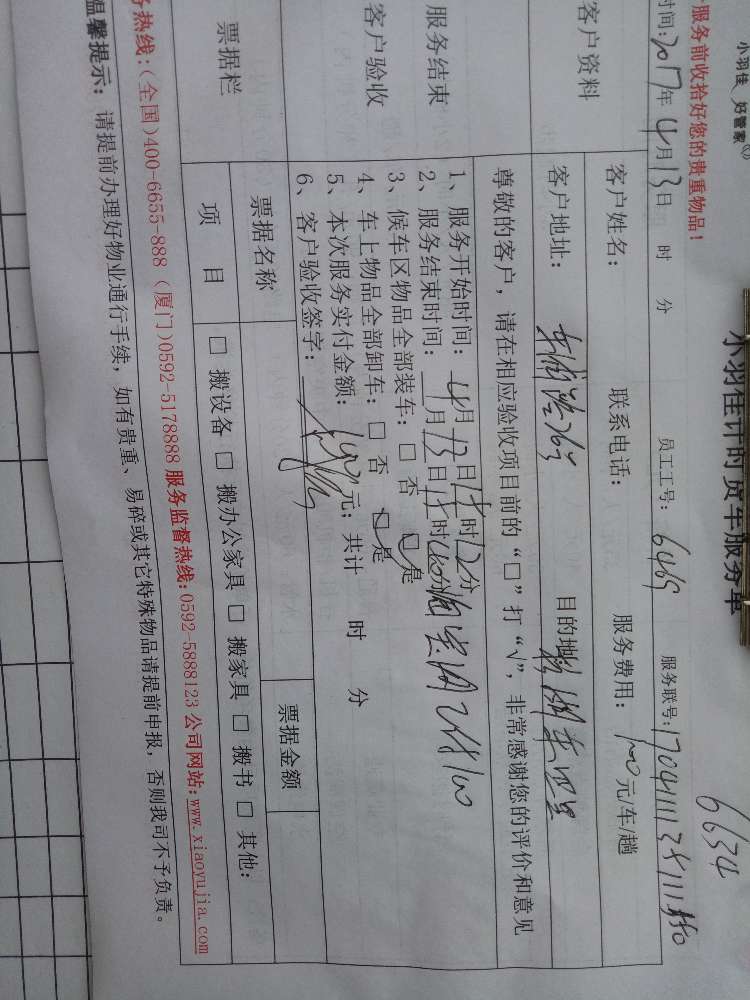 小羽佳 好管家
小羽佳计时货车服务单
6634
服务前收拾好您的贵重物品!
时间:2017年4月13日 时 分 员工工号: 6465 服务联号:
客户资料
客户姓名: 联系电话: 服务费用: 100元/车/趟
客户地址: 目的地:
服务结束
客户验收
尊敬的客户,请在相应验收项目前的“□”打“√”,非常感谢您的评价和意见
1、服务开始时间: 4月13日 时12分
2、服务结束时间: 月13日 时 分
3、候车区物品全部装车: □ 否 □是
4、车上物品全部卸车: □ 否 □是
5、本次服务实付金额: 元; 共计 时 分
6、客户验收签字:
票据栏
票据名称 票据金额
项 目 □ 搬设备 □ 搬办公家具 □ 搬家具 □ 搬书 □ 其他:
务热线:(全国)400-6655-888 (厦门)0592-5178888 服务监督热线:0592-5888123 公司网站:www.xiaoyujia.com
温馨提示: 请提前办理好物业通行手续, 如有贵重、易碎或其它特殊物品请提前申报, 否则我司不予负责。